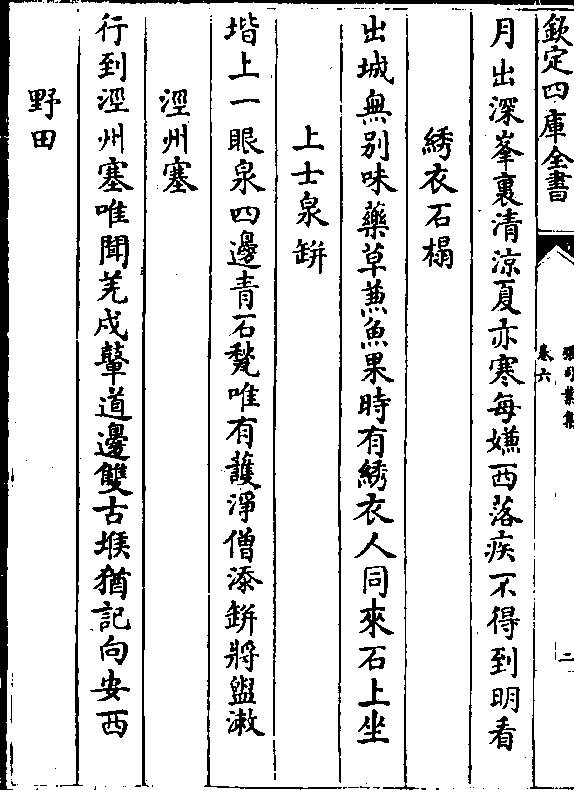 欽定四庫全書
卷六
二
月出深峯裏清涼夏亦寒每嫌西落疾不得到明看
綉衣石榻
出城無别味藥草蒹魚果時有綉衣人同來石上坐
上士泉缾
堦上一眼泉四邊青石甃唯有護淨僧添缾將盥漱
涇州塞
行到涇州塞唯聞羌戍鼙道邊雙古堠猶記向安西
野田